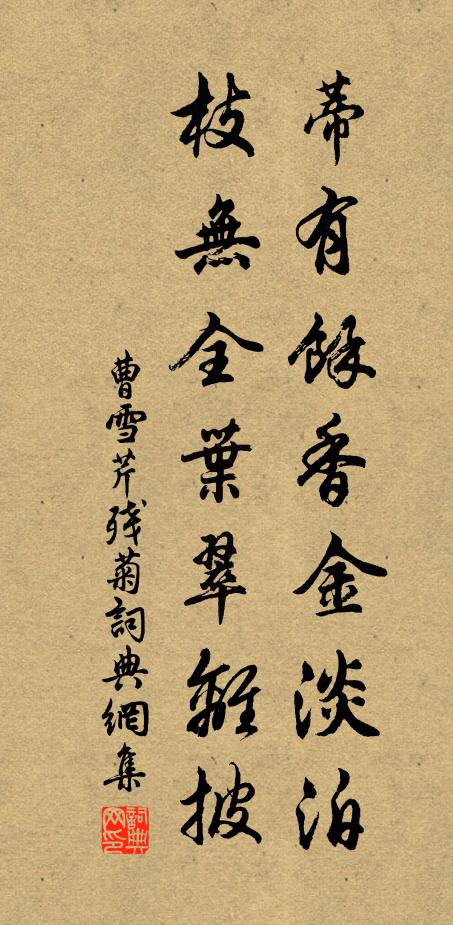 蒂有餘香金淡泊
枝無全葉翠離披
曹雪芹殘菊詞典網集
詞典网印